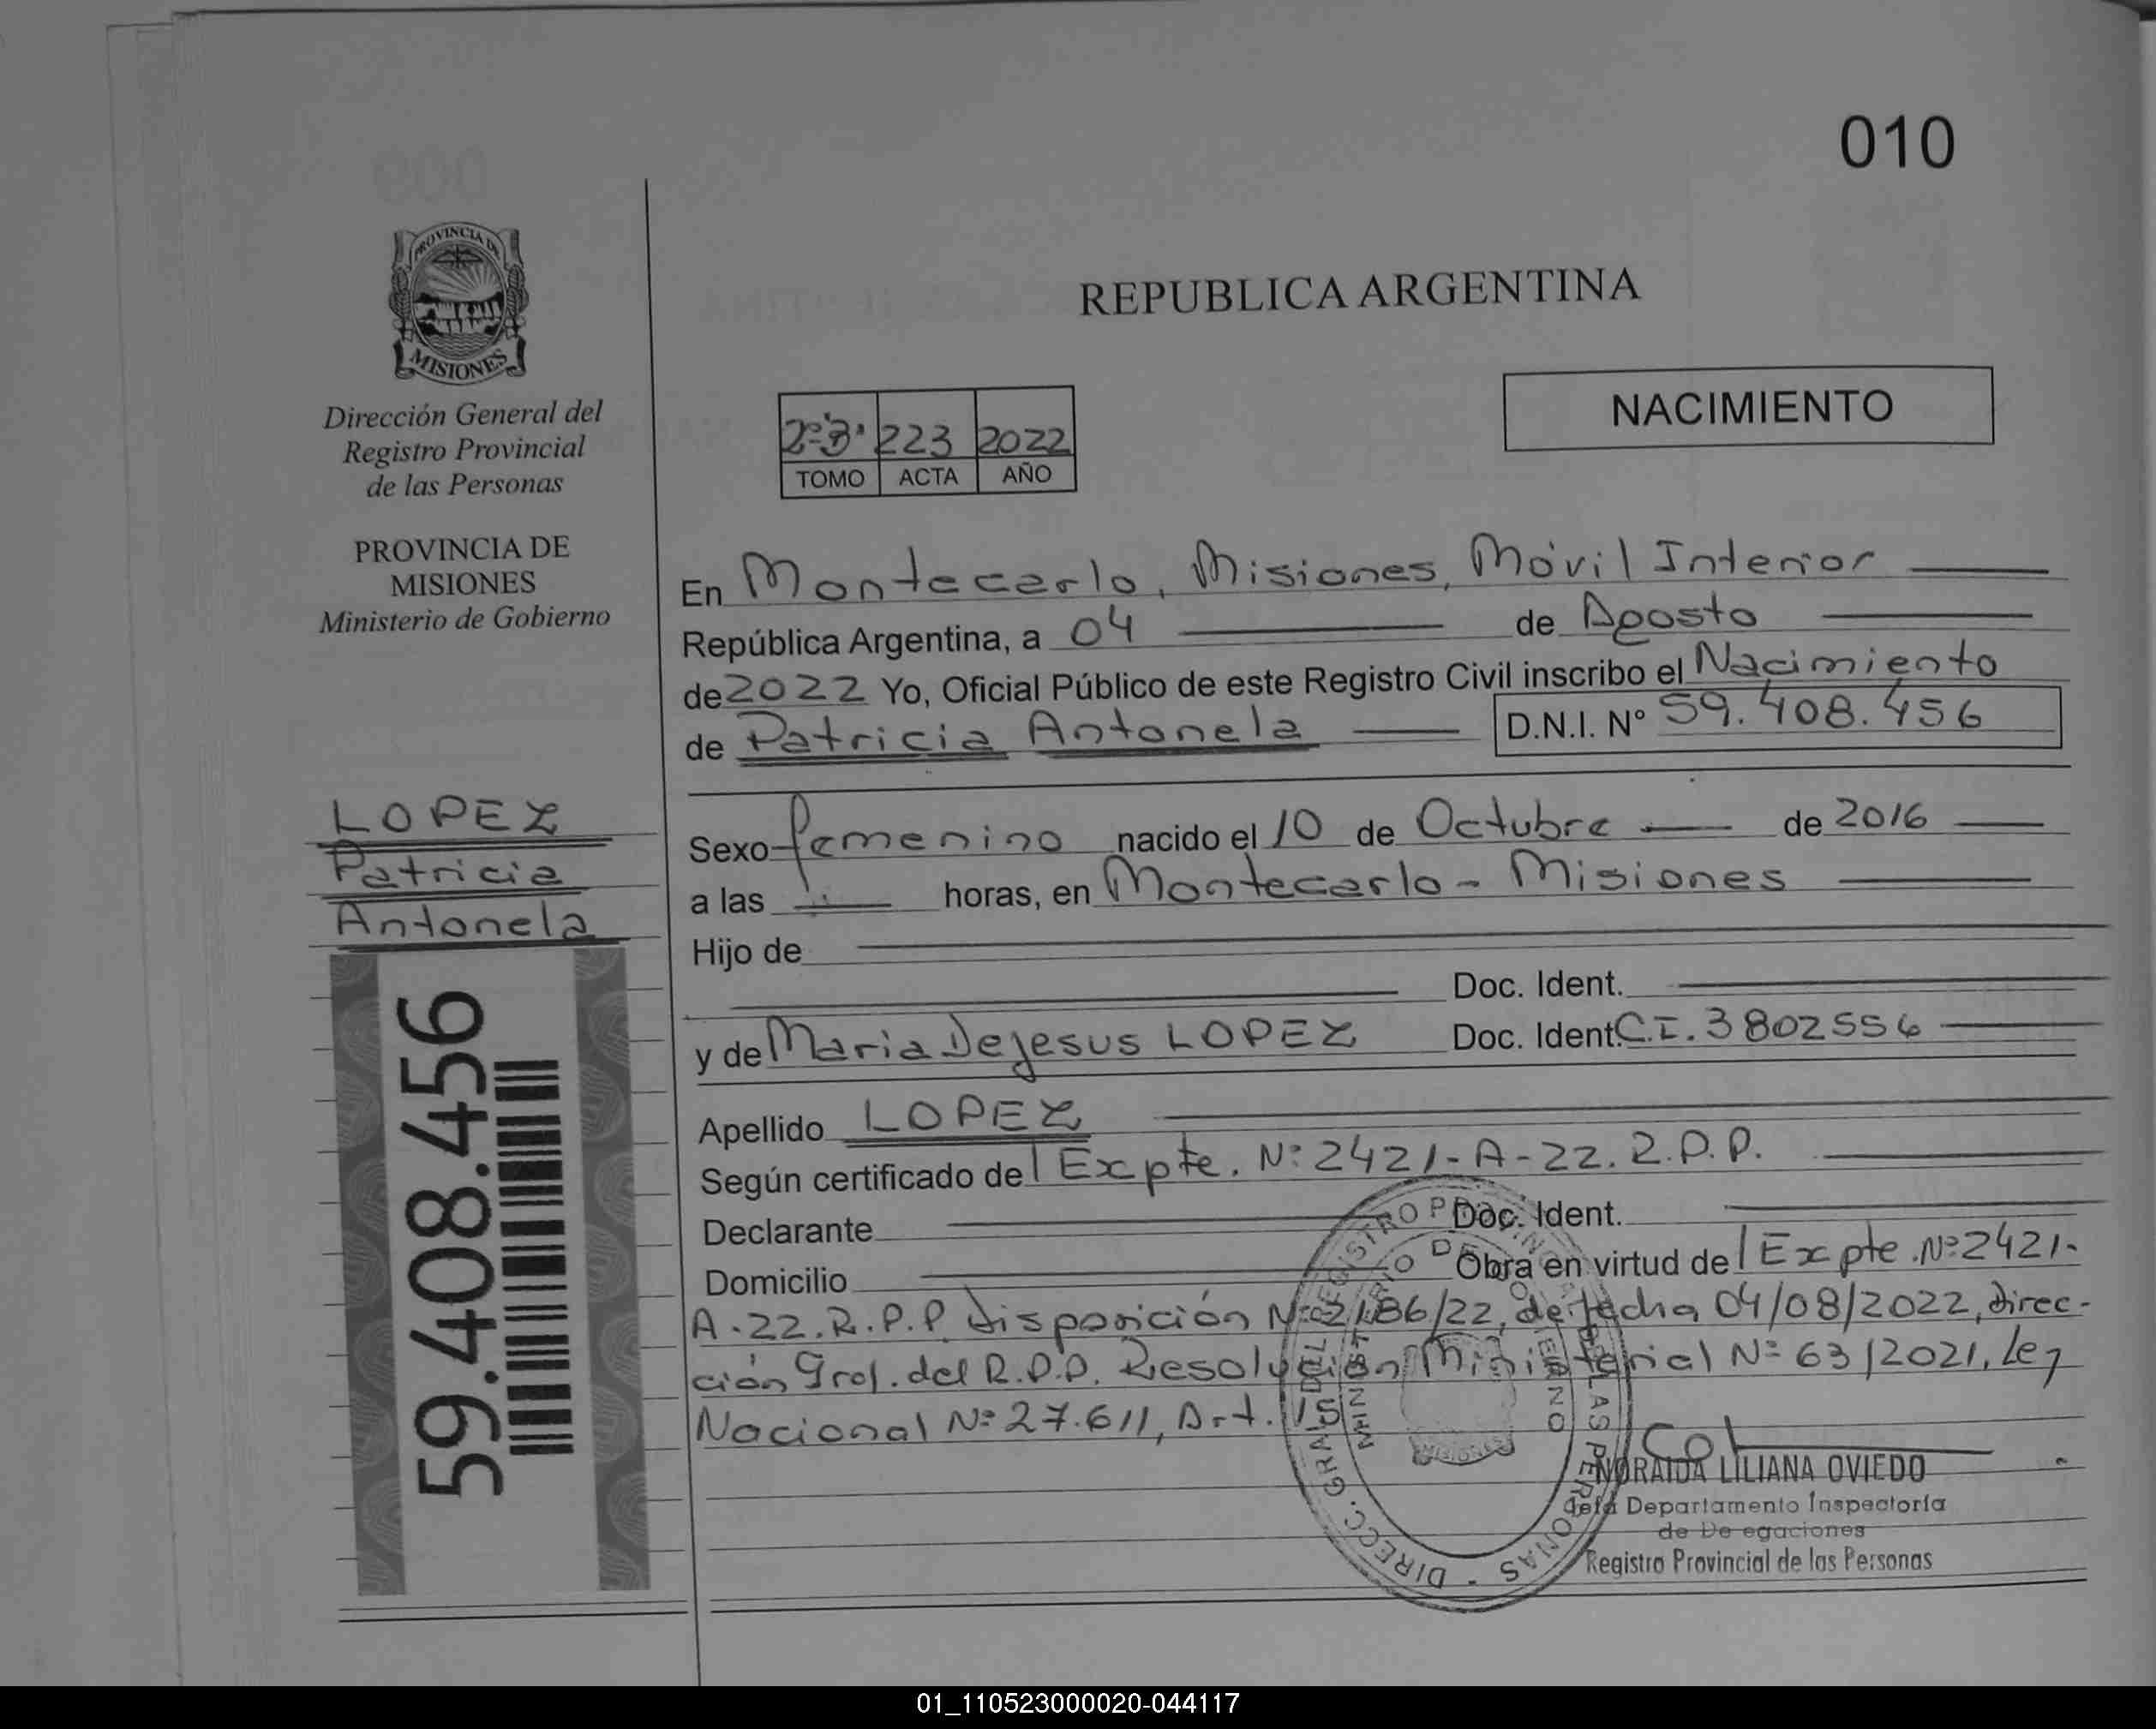 010
PROVINCIA DE
MISIONES
Dirección General del
Registro Provincial
de las Personas
PROVINCIA DE
MISIONES
Ministerio de Gobierno
LOPEZ
Patricia
Antonela
59.408.456
REPUBLICA ARGENTINA
NACIMIENTO
223 2022
TOMO ACTA AÑO
En Montecarlo, Misiones, Móvil Interior
República Argentina, a 04 de Agosto
de 2022 Yo, Oficial Público de este Registro Civil inscribo el Nacimiento
de Patricia Antonela D.N.I. Nº 59.408.456
Sexo femenino nacido el 10 de Octubre de 2016
a las horas, en Montecarlo - Misiones
Hijo de
Doc. Ident.
y de Maria Dejesus LOPEZ Doc. Ident. C.I. 3802556
Apellido LOPEZ
Según certificado del Expte. Nº 2421-A-22. R.P.P.
Declarante Doc. Ident.
Domicilio Obra en virtud del Expte. Nº 2421-
A-22. R.P.P. disposición Nº 2186/22, de fecha 04/08/2022, direc-
ción Gral. del R.P.P. Resolución Ministerial Nº 63/2021, Ley
Nacional Nº 27.611, Art.
NORAIDA LILIANA OVIEDO
Jefa Departamento Inspectoría
de Delegaciones
Registro Provincial de las Personas
01_110523000020-044117